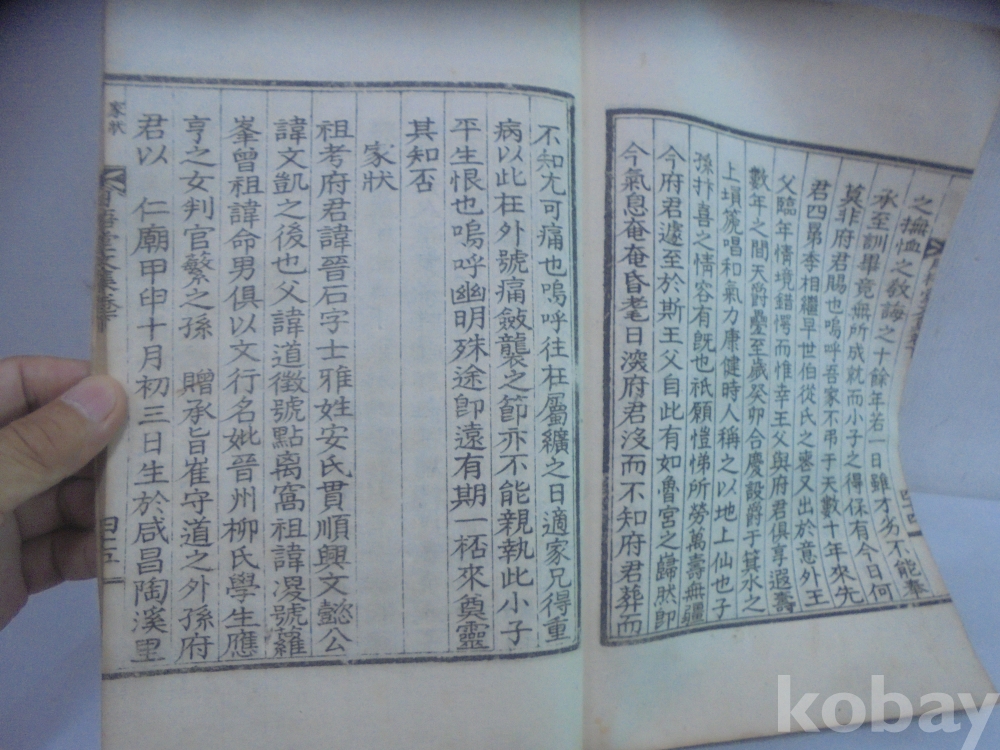 之撫恤之敎誨之十餘年若一日雖才劣不能奉
承至訓畢竟無所成就而小子之得保有今日何
莫非府君賜也嗚呼吾家不弔于天數十年來先
君四昴季相繼早世伯從氏之喪又出於意外王
父臨年情境錯愕而惟幸王父與府君俱享遐壽
數年之間天爵疊至歲癸卯合慶設爵于箕水之
上塤篪唱和氣力康健時人稱之以地上仙也子
孫抃喜之情容有旣也祇願愷悌所勞萬壽無疆
今府君遽至於斯王父自此有如魯宮之歸肰卽
今氣息奄奄昏耄日深府君沒而不知府君葬而
不知尤可痛也嗚呼往枉屬纊之日適家兄得重
病以此枉外號痛斂襲之節亦不能親執此小子
平生恨也嗚呼幽明殊途卽遠有期一桮來奠靈
其知否
家狀
祖考府君諱晉石字士雅姓安氏貫順興文懿公
諱文凱之後也父諱道徵號點离窩祖諱㴫號蘿
峯曾祖諱命男俱以文行名妣晉州柳氏學生應
亨之女判官蘩之孫 贈承旨崔守道之外孫府
君以 仁廟甲申十月初三日生於咸昌陶溪里
家狀
四十五
kobay